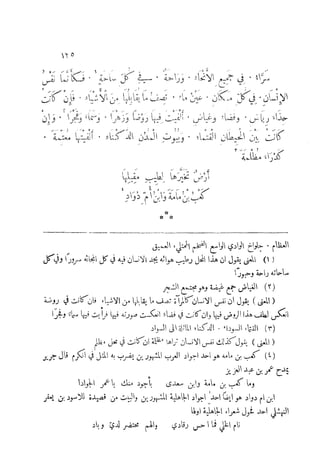 ١٢٥
سَرَّاءَ . فِي جَمِيعِ الْأَنْحَاءِ . وَرَاحَةٌ . فِي كُلِّ سَاحَةٍ ١ . فَكَأَنَّمَا نَفْسُ
الْإِنْسَانِ . فِي كُلِّ مَكَانٍ . عَيْنُ مَاءٍ . تَصِفُ مَا يُقَابِلُهَا مِنَ الْأَشْيَاءِ . فَإِنْ كَانَتْ
رِيَاضٌ . وَفَضَاءٌ وَغِيَاضٌ . أَلْفَيْتَ فِيهَا رَوْضًا وَزَهْرًا . وَسَمَاءً وَفَجْرًا ٢ . وَإِنْ
كَانَتْ بَيْنَ الْحِيطَانِ الْقَتْمَاءِ . وَبُيُوتِ الْمُدُنِ الدَّكْنَاءِ . أَلْفَيْتَهَا مُعْتِمَةً .
كَدْرَاءَ . مُظْلِمَةً
أَرْضٌ تَخَيَّرَهَا لِطِيبِ مَقِيلِهَا
كَعْبُ بْنُ مَامَةَ وَابْنُ أُمِّ دُوَادِ
***
العظام - جلواخ الوادي الواسع الضخم الممتلئ العميق
(١) (المعنى) يقول ان هذا المحل رطيب هوائه يجد الانسان فيه في كل انحائه سرورًا وفي كل
ساحاته راحة وحبورًا
(٢) الغياض جمع غيضة وهو مجتمع الشجر
(المعنى) يقول ان نفس الانسان كالمرآة تصف ما يقابلها من الاشياء فان كانت في روضة
انعكس لطف هذا الروض فيها وان كانت في فضاء انعكست صورته فيها فرأيت فيها سماء وفجرًا
(٣) القتماء السوداء . الدكناء المائلة الى السواد
(المعنى) يقول كذلك نفس الانسان تراها مظلمة ان كانت في محل مظلم
(٤) كعب بن مامة هو احد اجواد العرب المشهورين يضرب به المثل في الكرم قال جرير
يمدح عمر بن عبد العزيز
وما كعب بن مامة وابن سعدى بأجود منك يا عمر الجوادا
ابن ام دواد هو ايضًا احد اجواد الجاهلية المشهورين والبيت من قصيدة للاسود بن يعفر
النهشلي احد فحول شعراء الجاهلية اولها
نام الخلي فما احس رقادي والهم محتضر لدي وسادي